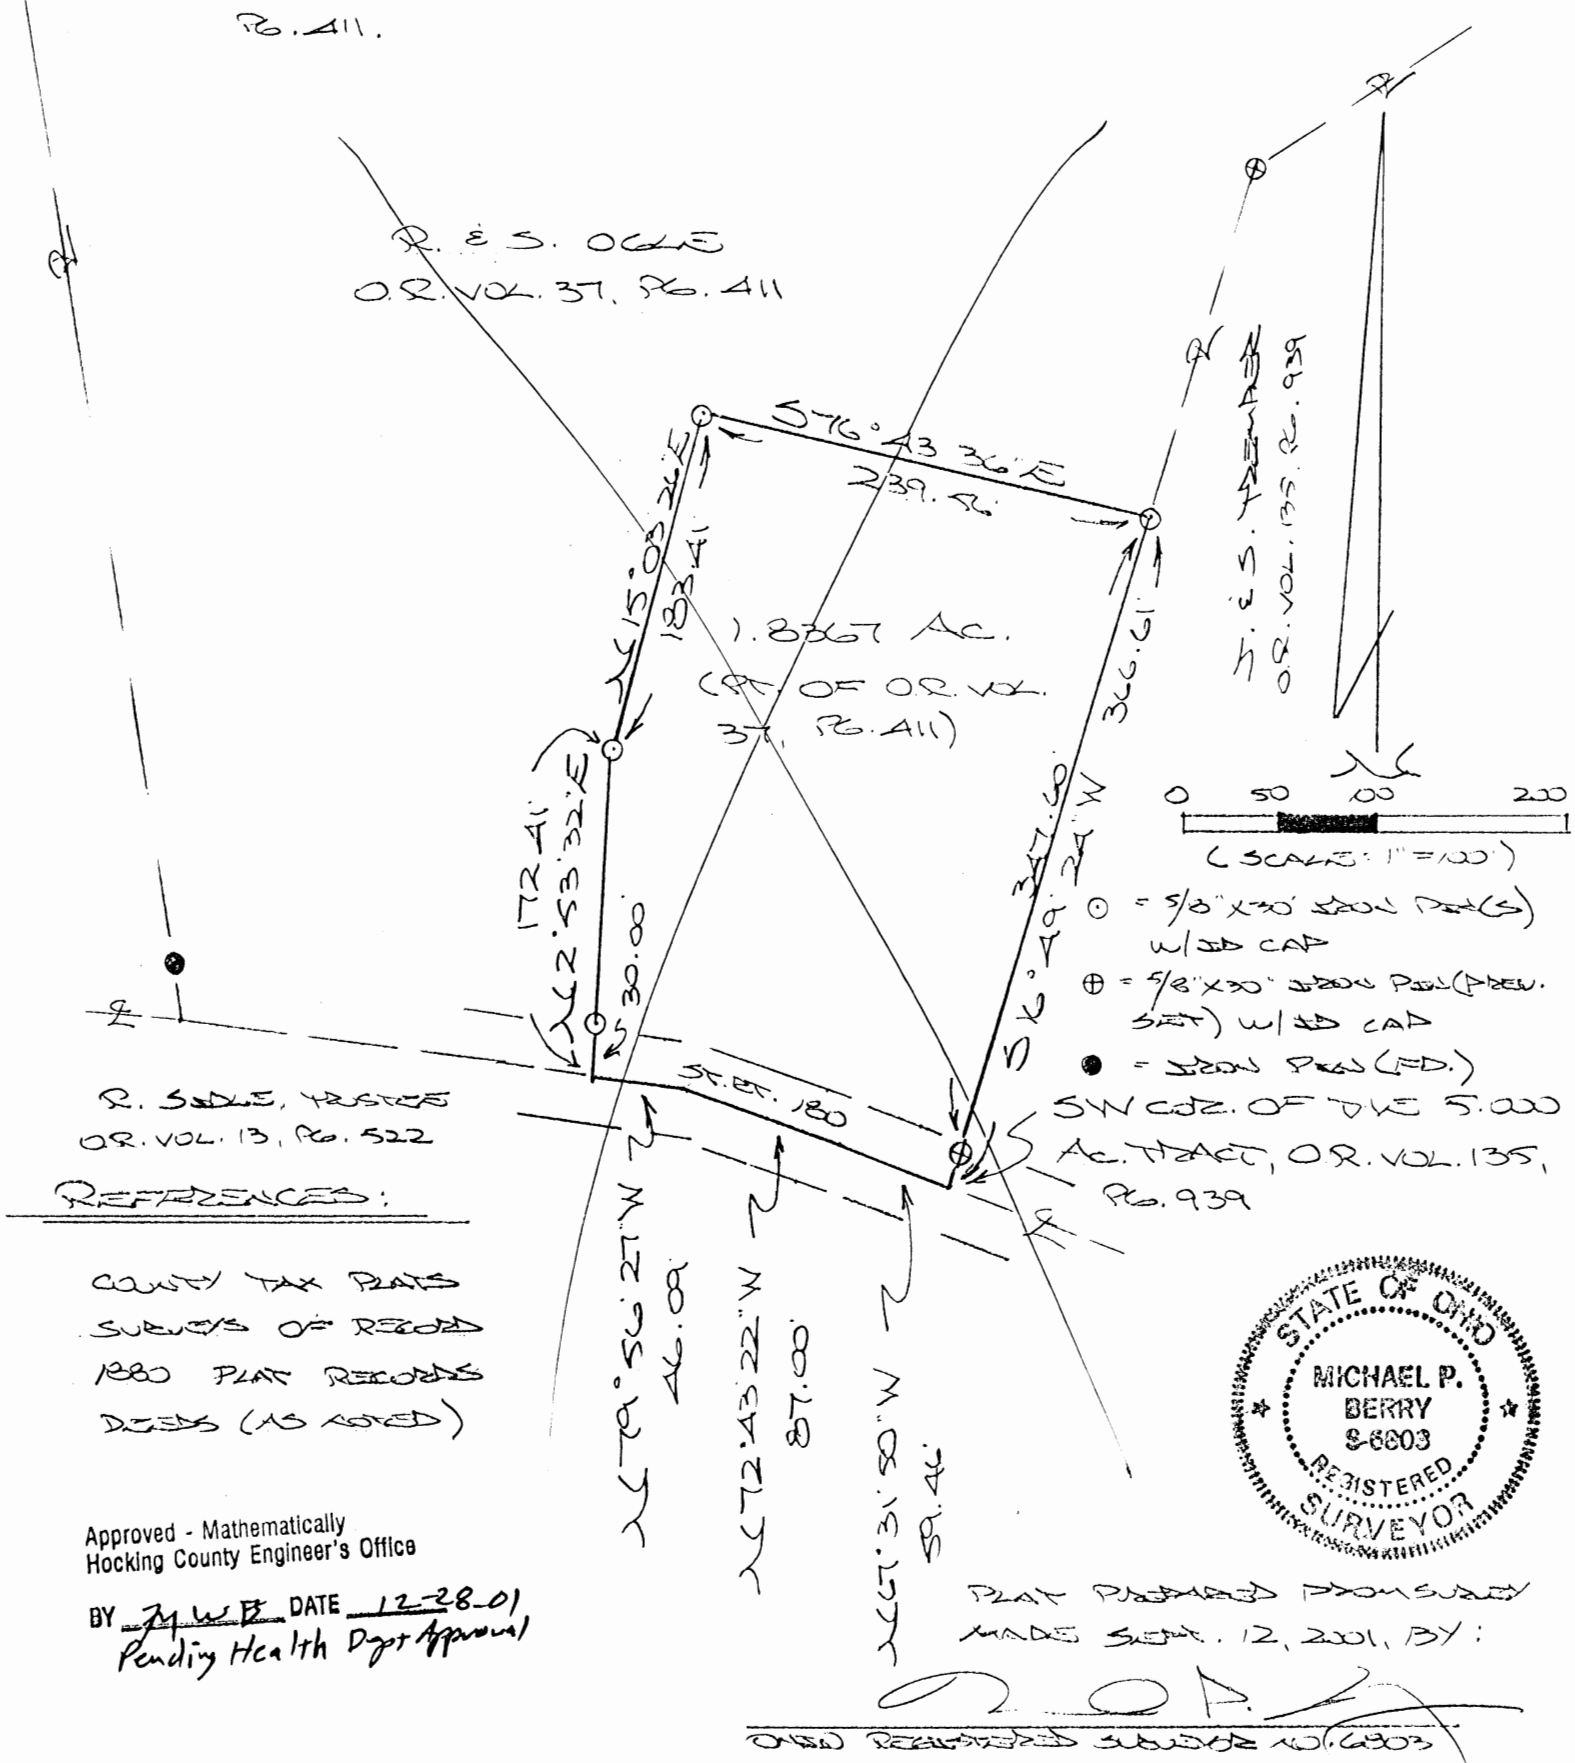 PG. 411.
R. & S. OGLE
O.R. VOL. 37, PG. 411
S 76° 43' 36" E
239.56'
N 15° 03' 26" E
183.41'
1.8367 AC.
(PT. OF O.R. VOL.
37, PG. 411)
366.61'
347.60'
S 16° 49' 24" W
O.R. VOL. 135, PG. 939
172.41'
N 2° 53' 32" E
30.00'
0 50 100 200
(SCALE: 1" = 100')
⊙ = 5/8" X 30" IRON PIN(S)
W/ ID CAP
⊕ = 5/8" X 30" IRON PIN (PREV.
SET) W/ ID CAP
● = IRON PIN (FD.)
SW COR. OF THE 5.000
AC. TRACT, O.R. VOL. 135,
PG. 939
ST. RT. 180
R. SIDLE, TRUSTEE
O.R. VOL. 13, PG. 522
REFERENCES:
COUNTY TAX PLATS
SURVEYS OF RECORD
1880 PLAT RECORDS
DEEDS (AS NOTED)
N 79° 56' 27" W
46.09'
N 72° 43' 22" W
87.00'
N 67° 31' 50" W
59.46'
STATE OF OHIO
MICHAEL P.
BERRY
S-6803
REGISTERED
SURVEYOR
Approved - Mathematically
Hocking County Engineer's Office
BY DATE 12-28-01
Pending Health Dept Approval
PLAT PREPARED FROM SURVEY
MADE SEPT. 12, 2001, BY:
OHIO REGISTERED SURVEYOR NO. 6803